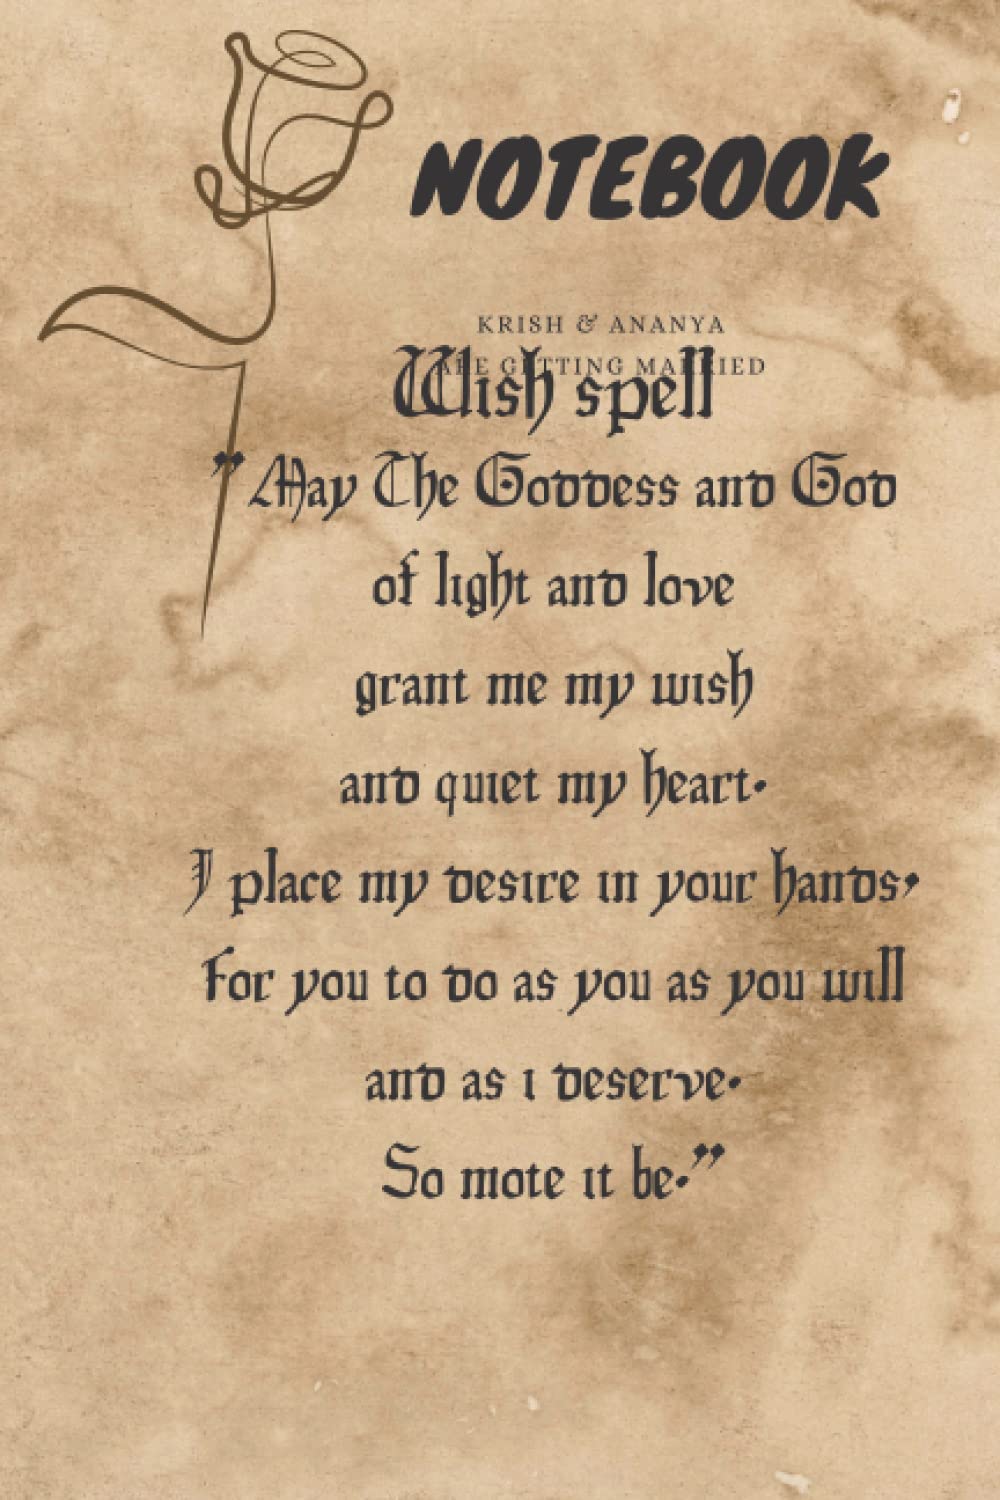 NOTEBOOK
KRISH & ANANYA
ARE GETTING MARRIED
Wish spell
" May The Goddess and God
of light and love
grant me my wish
and quiet my heart.
I place my desire in your hands,
For you to do as you as you will
and as i deserve.
So mote it be."